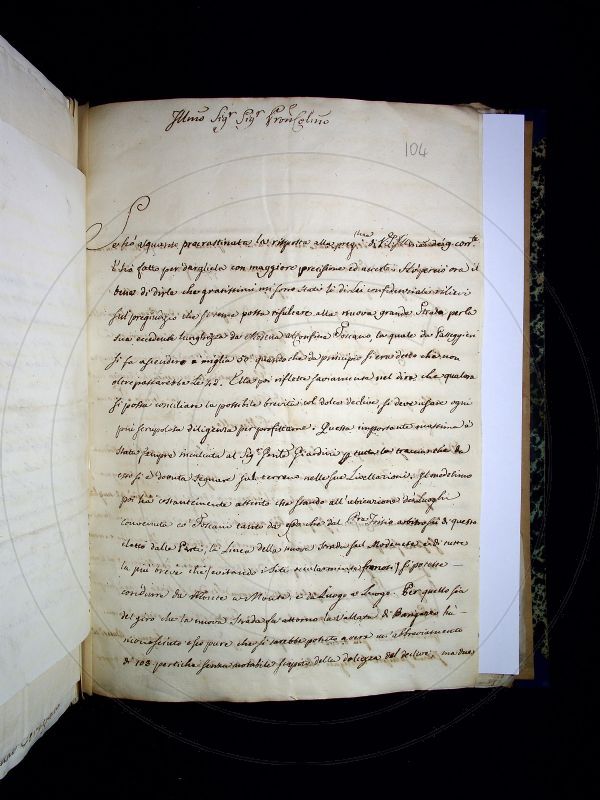 Illmo Sigr Sigr Pron Colmo
104
Se hò alquanto procrastinata la risposta alla preg.
l'hò fatto per dargliela con maggiore precisione ed
di dirle che gratissimi mi sono stati le di lei confidenziali
sul pregiudizio che si teme possa risultare alla nuova grande Strada per la
sua eccedente lunghezza da Modena al Confine Toscano, la quale da Passeggieri
si fa ascendere a miglia 50 quando che da principio si era detto che non
oltrepassarebbe le 42. Ella poi riflette saviamente nel dire che qualora
si possa conciliare la possibile brevità col dolce declive si deve usare ogni
più scrupolosa diligenza per profittarne. Questa importante massima è
stata sempre inculcata al Sigr Giardini per tutta la traccia che da
esso si è dovuta segnare sul terreno nelle sue Livellazioni. Il medesimo
poi hà costantemente asserito che stando all'ubicazione dei Luoghi
convenuta co' Toscani
dalle Parti, la Linea della nuova Strada sul Modenese è di tutte
la più breve che (evitando i Siti franosi) si potesse
condurre da Monte a Monte, e di Luogo a Luogo. Per quello sia
del giro che la nuova Strada fa attorno la Vallata di Barigazzo hà
riconosciuto esso pure che si sarebbe potuto avere un abbreviamento
di 108 pertiche senza notabile della dolcezza del declive, ma due